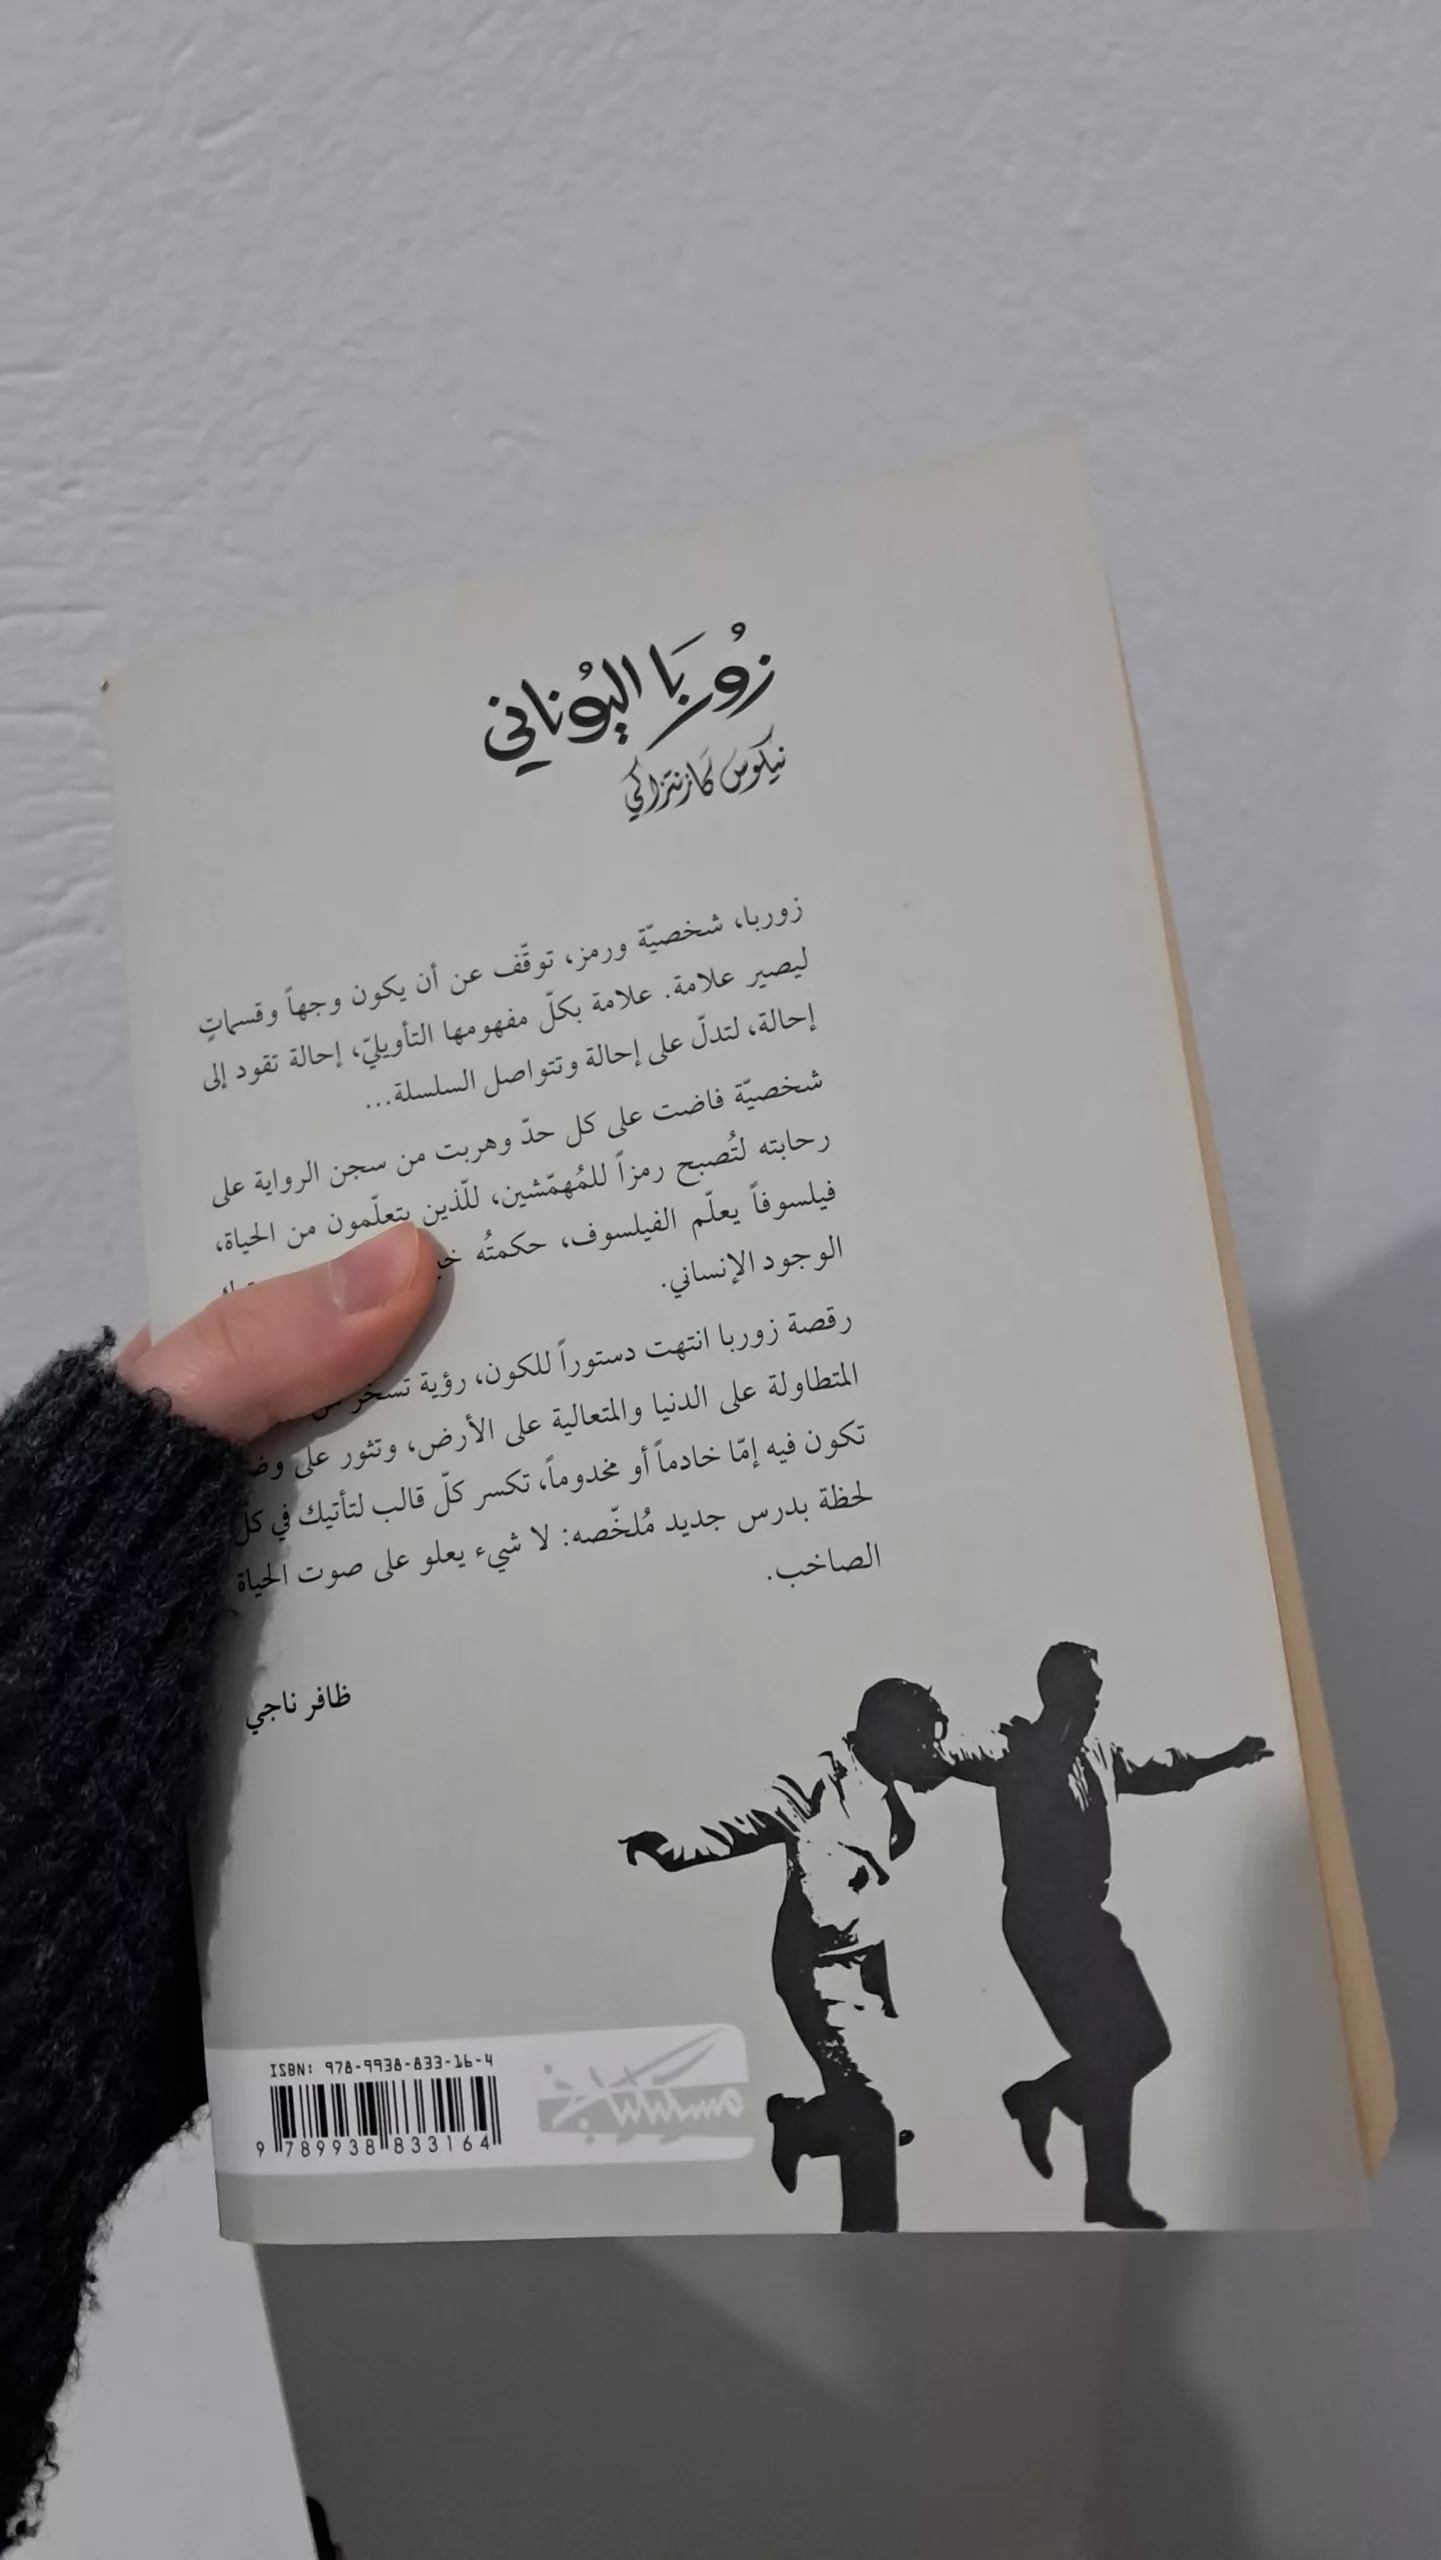 زُوربَا اليُوناني
نيكوس كازنتزاكي
زوربا، شخصيّة ورمز، توقّف عن أن يكون وجهاً وقسماتٍ
ليصير علامة. علامة بكلّ مفهومها التأويليّ، إحالة تقود إلى
إحالة، لتدلّ على إحالة وتتواصل السلسلة...
شخصيّة فاضت على كل حدّ وهربت من سجن الرواية على
رحابته لتُصبح رمزاً للمُهمّشين، للّذين يتعلّمون من الحياة،
فيلسوفاً يعلّم الفيلسوف، حكمتُه
الوجود الإنساني.
رقصة زوربا انتهت دستوراً للكون، رؤية تسخر من
المتطاولة على الدنيا والمتعالية على الأرض، وتثور على
تكون فيه إمّا خادماً أو مخدوماً، تكسر كلّ قالب لتأتيك في كلّ
لحظة بدرس جديد مُلخّصه: لا شيء يعلو على صوت الحياة
الصاخب.
ظافر ناجي
ISBN: 978-9938-833-16-4
9 789938 833164